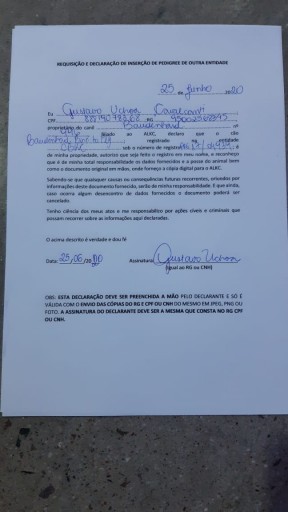 REQUISIÇÃO E DECLARAÇÃO DE INSERÇÃO DE PEDIGREE DE OUTRA ENTIDADE
25 de Junho 2020
Eu Gustavo Uchoa Cavalcanti
CPF RG
proprietário do canil nº
filiado ao ALKC, declara que o cão
registrado na entidade
sob o número de registro é
de minha propriedade, autorizo que seja feito o registro em meu nome, e reconheço
que é de minha total responsabilidade os dados fornecidos e a posse do animal bem
como o documento original em mãos, onde forneço a cópia digital para o ALKC.
Sabendo-se que quaisquer causas ou consequências futuras recorrentes, oriundos por
informações deste documento fornecido, serão de minha responsabilidade. E que ainda,
caso ocorra algum desencontro de dados fornecidos o documento poderá ser
cancelado.
Tenho ciência dos meus atos e me responsabilizo por ações cíveis e criminais que
possam recorrer sobre as informações aqui declaradas.
O acima descrito é verdade e dou fé
Data 25/06/2020 Assinatura Gustavo Uchoa
(igual ao RG ou CNH)
OBS: ESTA DECLARAÇÃO DEVE SER PREENCHIDA A MÃO PELO DECLARANTE E SÓ É
VÁLIDA COM O ENVIO DAS CÓPIAS DO RG E CPF OU CNH DO MESMO EM JPEG, PNG OU
FOTO. A ASSINATURA DO DECLARANTE DEVE SER A MESMA QUE CONSTA NO RG CPF
OU CNH.